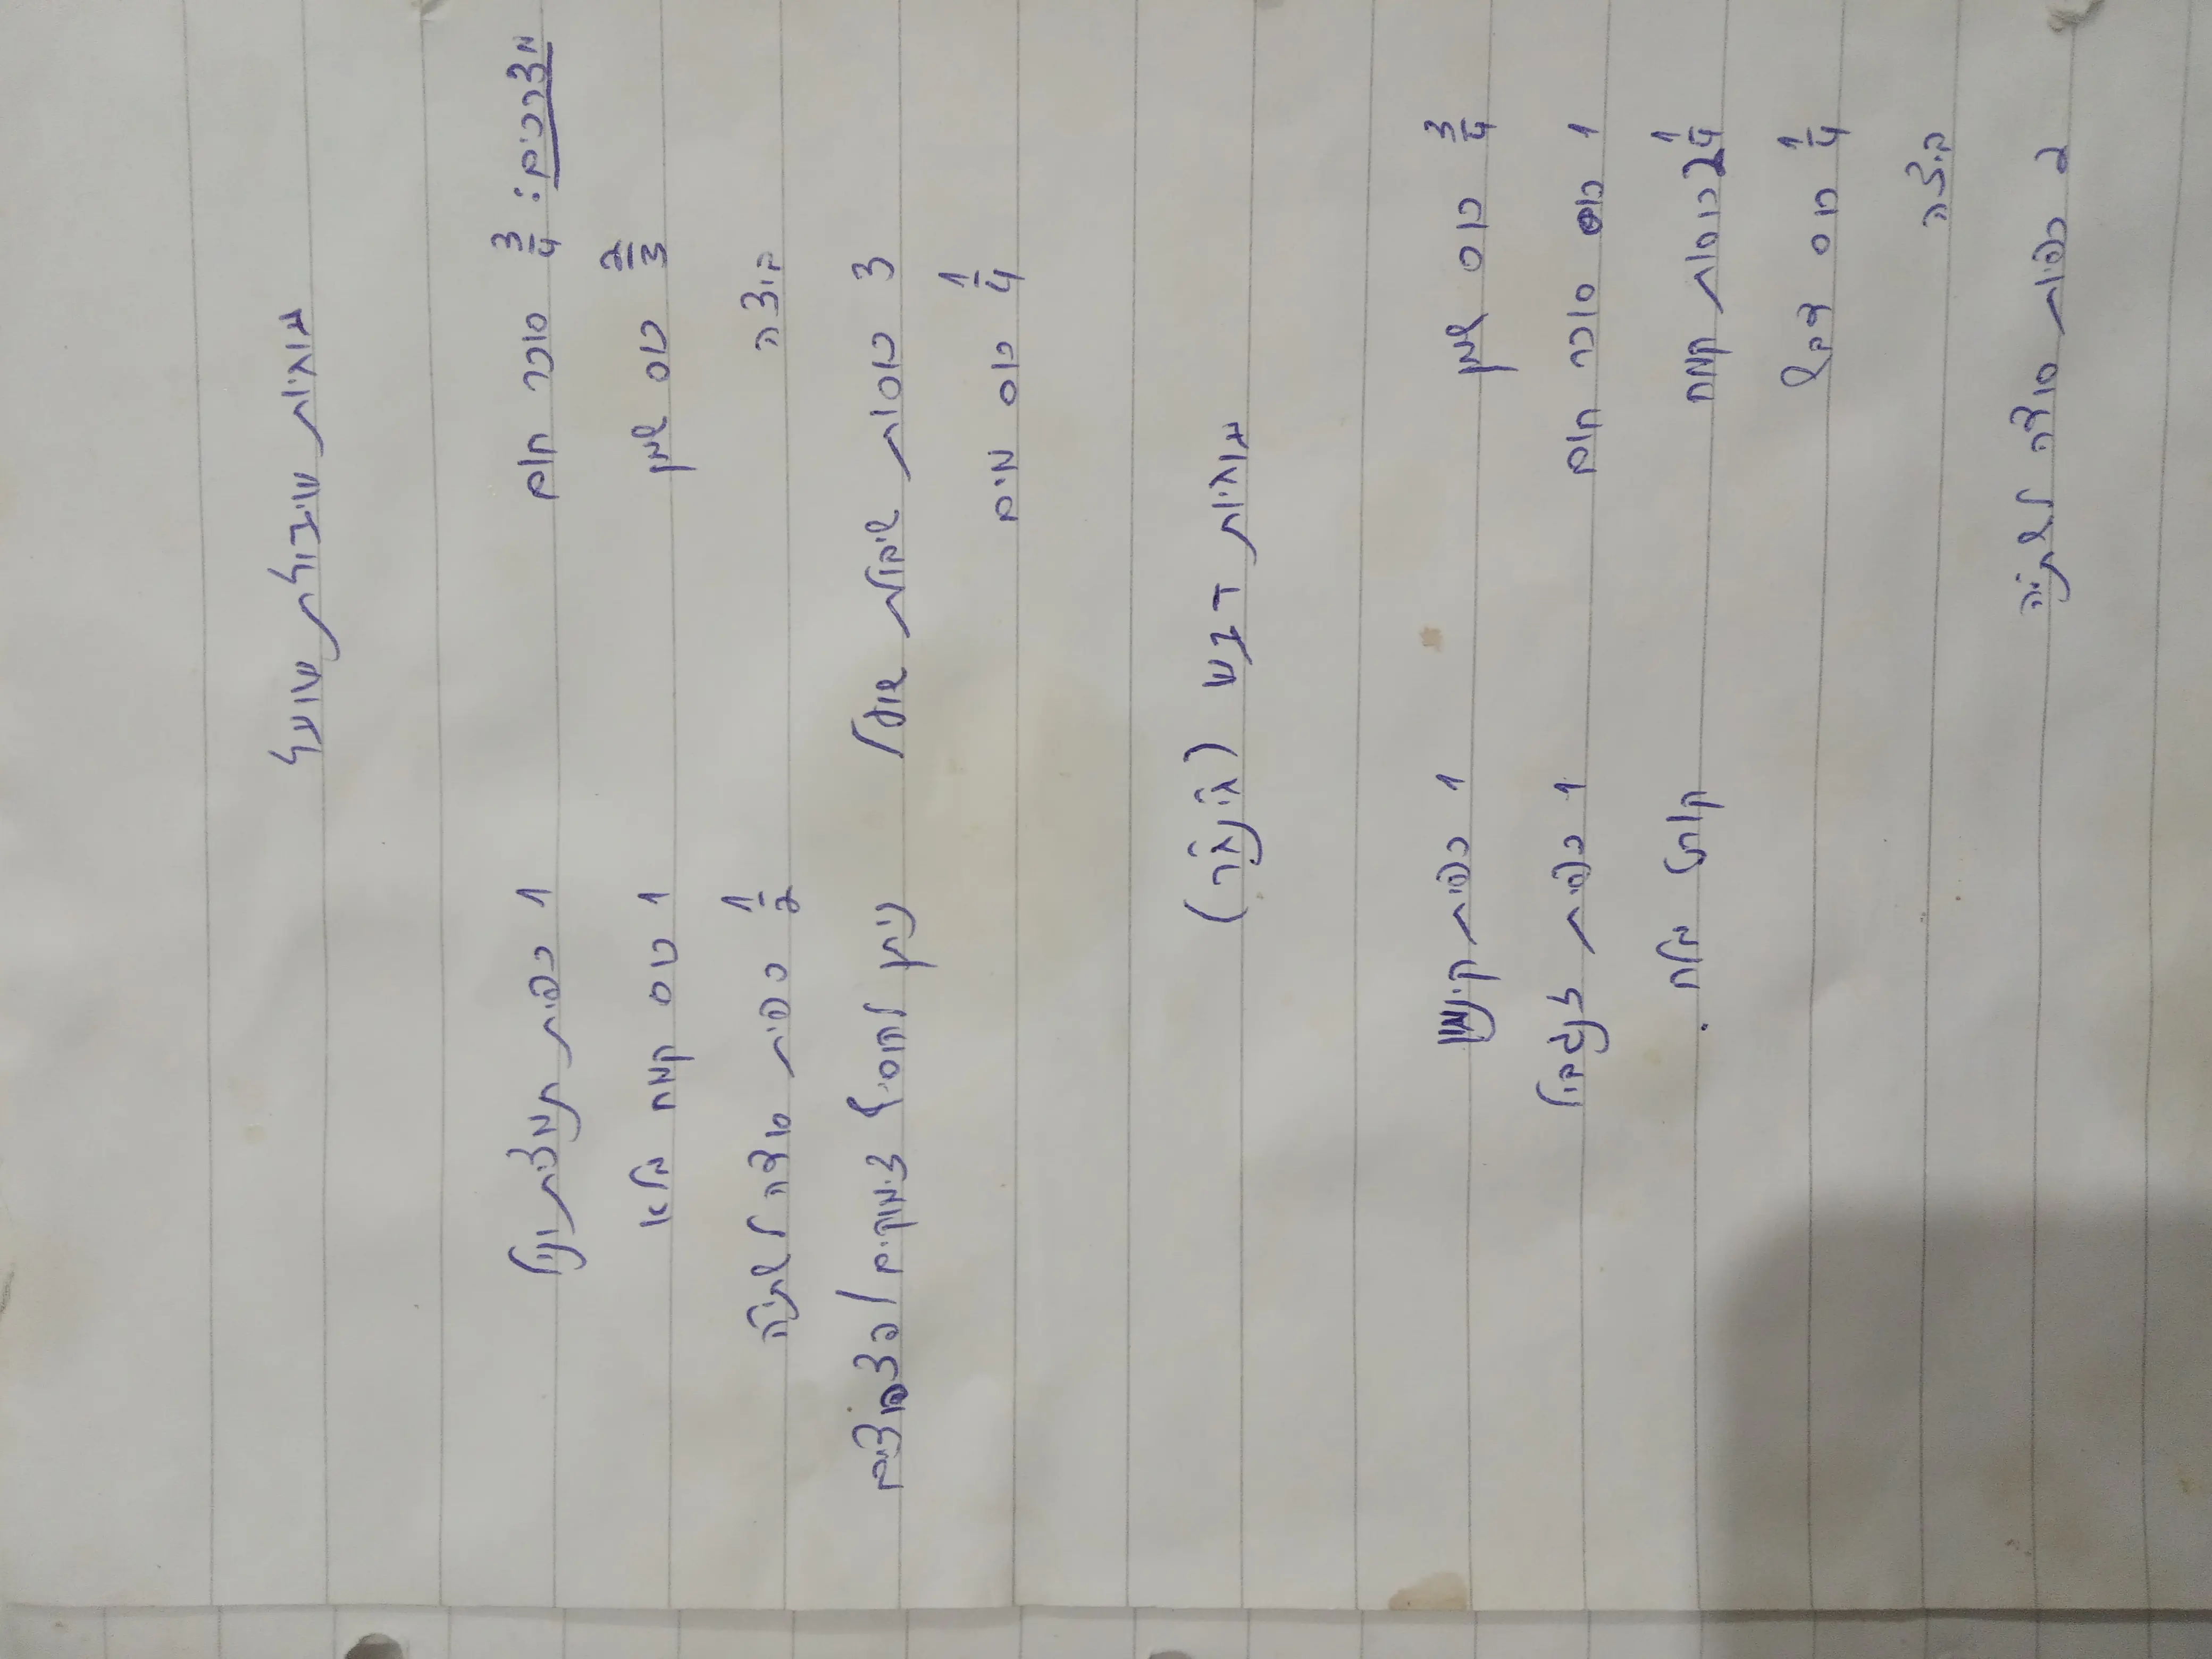 עוגיות שיבולת שועל
מצרכים: 3/4 סוכר חום
2/3 כוס שמן
ביצה
3 כוסות שיבולת שועל
1/4 כוס מים
1 כפית תמצית וניל
1 כוס קמח מלא
1/2 כפית סודה לשתיה
ניתן להוסיף צימוקים / בוטנים
עוגיות דבש (ג'ינג'ר)
3/4 כוס שמן
1 כוס סוכר חום
2 1/4 כוסות קמח
1/4 כוס דבש
ביצה
2 כפיות סודה לשתיה
1 כפית קינמון
1 כפית ג'ינג'ר
קורט מלח